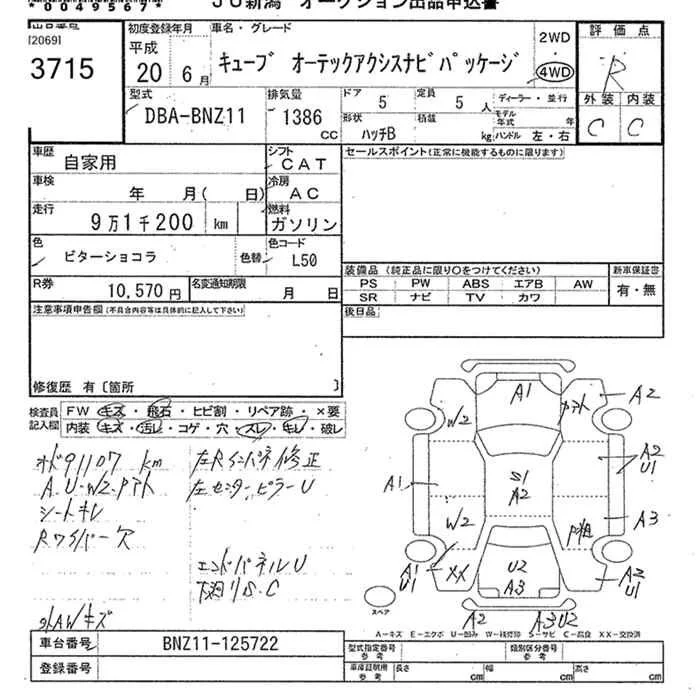 *0049567*
JU新潟 オークション出品申込書
出品番号
[20691
3715
初度登録年月
平成
20 6月
車名・グレード
キューブ オーテックアクシスナビパッケージ
2WD
4WD
評価点
R
外装 内装
C C
型式
DBA-BNZ11
排気量
1386
cc
ドア
5
定員
5人
ディーラー・並行
形状
ハッチB
積載
kg
モデル年式
年
ハンドル 左・右
車歴
自家用
シフト
CAT
車検
年 月( 日)
冷房
AC
走行
9万1千200 km
燃料
ガソリン
色
ビターショコラ
色替
色コード
L50
R券
10,570円
名変通知期限
月 日
セールスポイント(正常に機能するものに限ります)
装備品 (純正品に限り〇をつけてください)
PS PW ABS エアB AW
SR ナビ TV カワ
新車保証書
有・無
後日品
注意事項申告欄(不具合内容等は具体的に記入して下さい)
修復歴 有〔箇所 〕
検査員記入欄
FW キズ・飛石・ヒビ割・リペア跡・×要
内装 キズ・汚レ・コゲ・穴・スレ・キレ・破レ
オド91107 km
A.U.W2.アト
シートキレ
Rワイパー欠
外AWキズ
左Rインパネ修正
左センターピラーU
エンドパネルU
下廻りS.C
A1
W2
A2
A1
S1
A2
A2
U1
W2
A3
A1
U1
XX
U2
A3
A2
U1
スペア
A2
A3U2
A-キズ E-エクボ U-凹み W-補修跡 S-サビ C-腐食 XX-交換済
車台番号
BNZ11-125722
登録番号
型式指定番号
参考
類別区分番号
参考
車庫証明用
参考
長さ cm
幅 cm
高さ cm